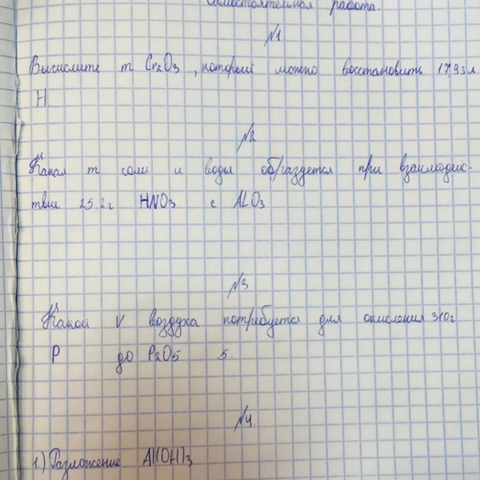 Самостоятельная работа.
№1
Вычислите m Cr2O3, который можно восстановить 17,93л
H
№2
Какая m соли и воды образуется при взаимодейс-
твие 25,2г HNO3 с ALO3
№3
Какой V воздуха потребуется для окисления 310г
P до P2O5 5.
№4
1.) Разложение Al(OH)3